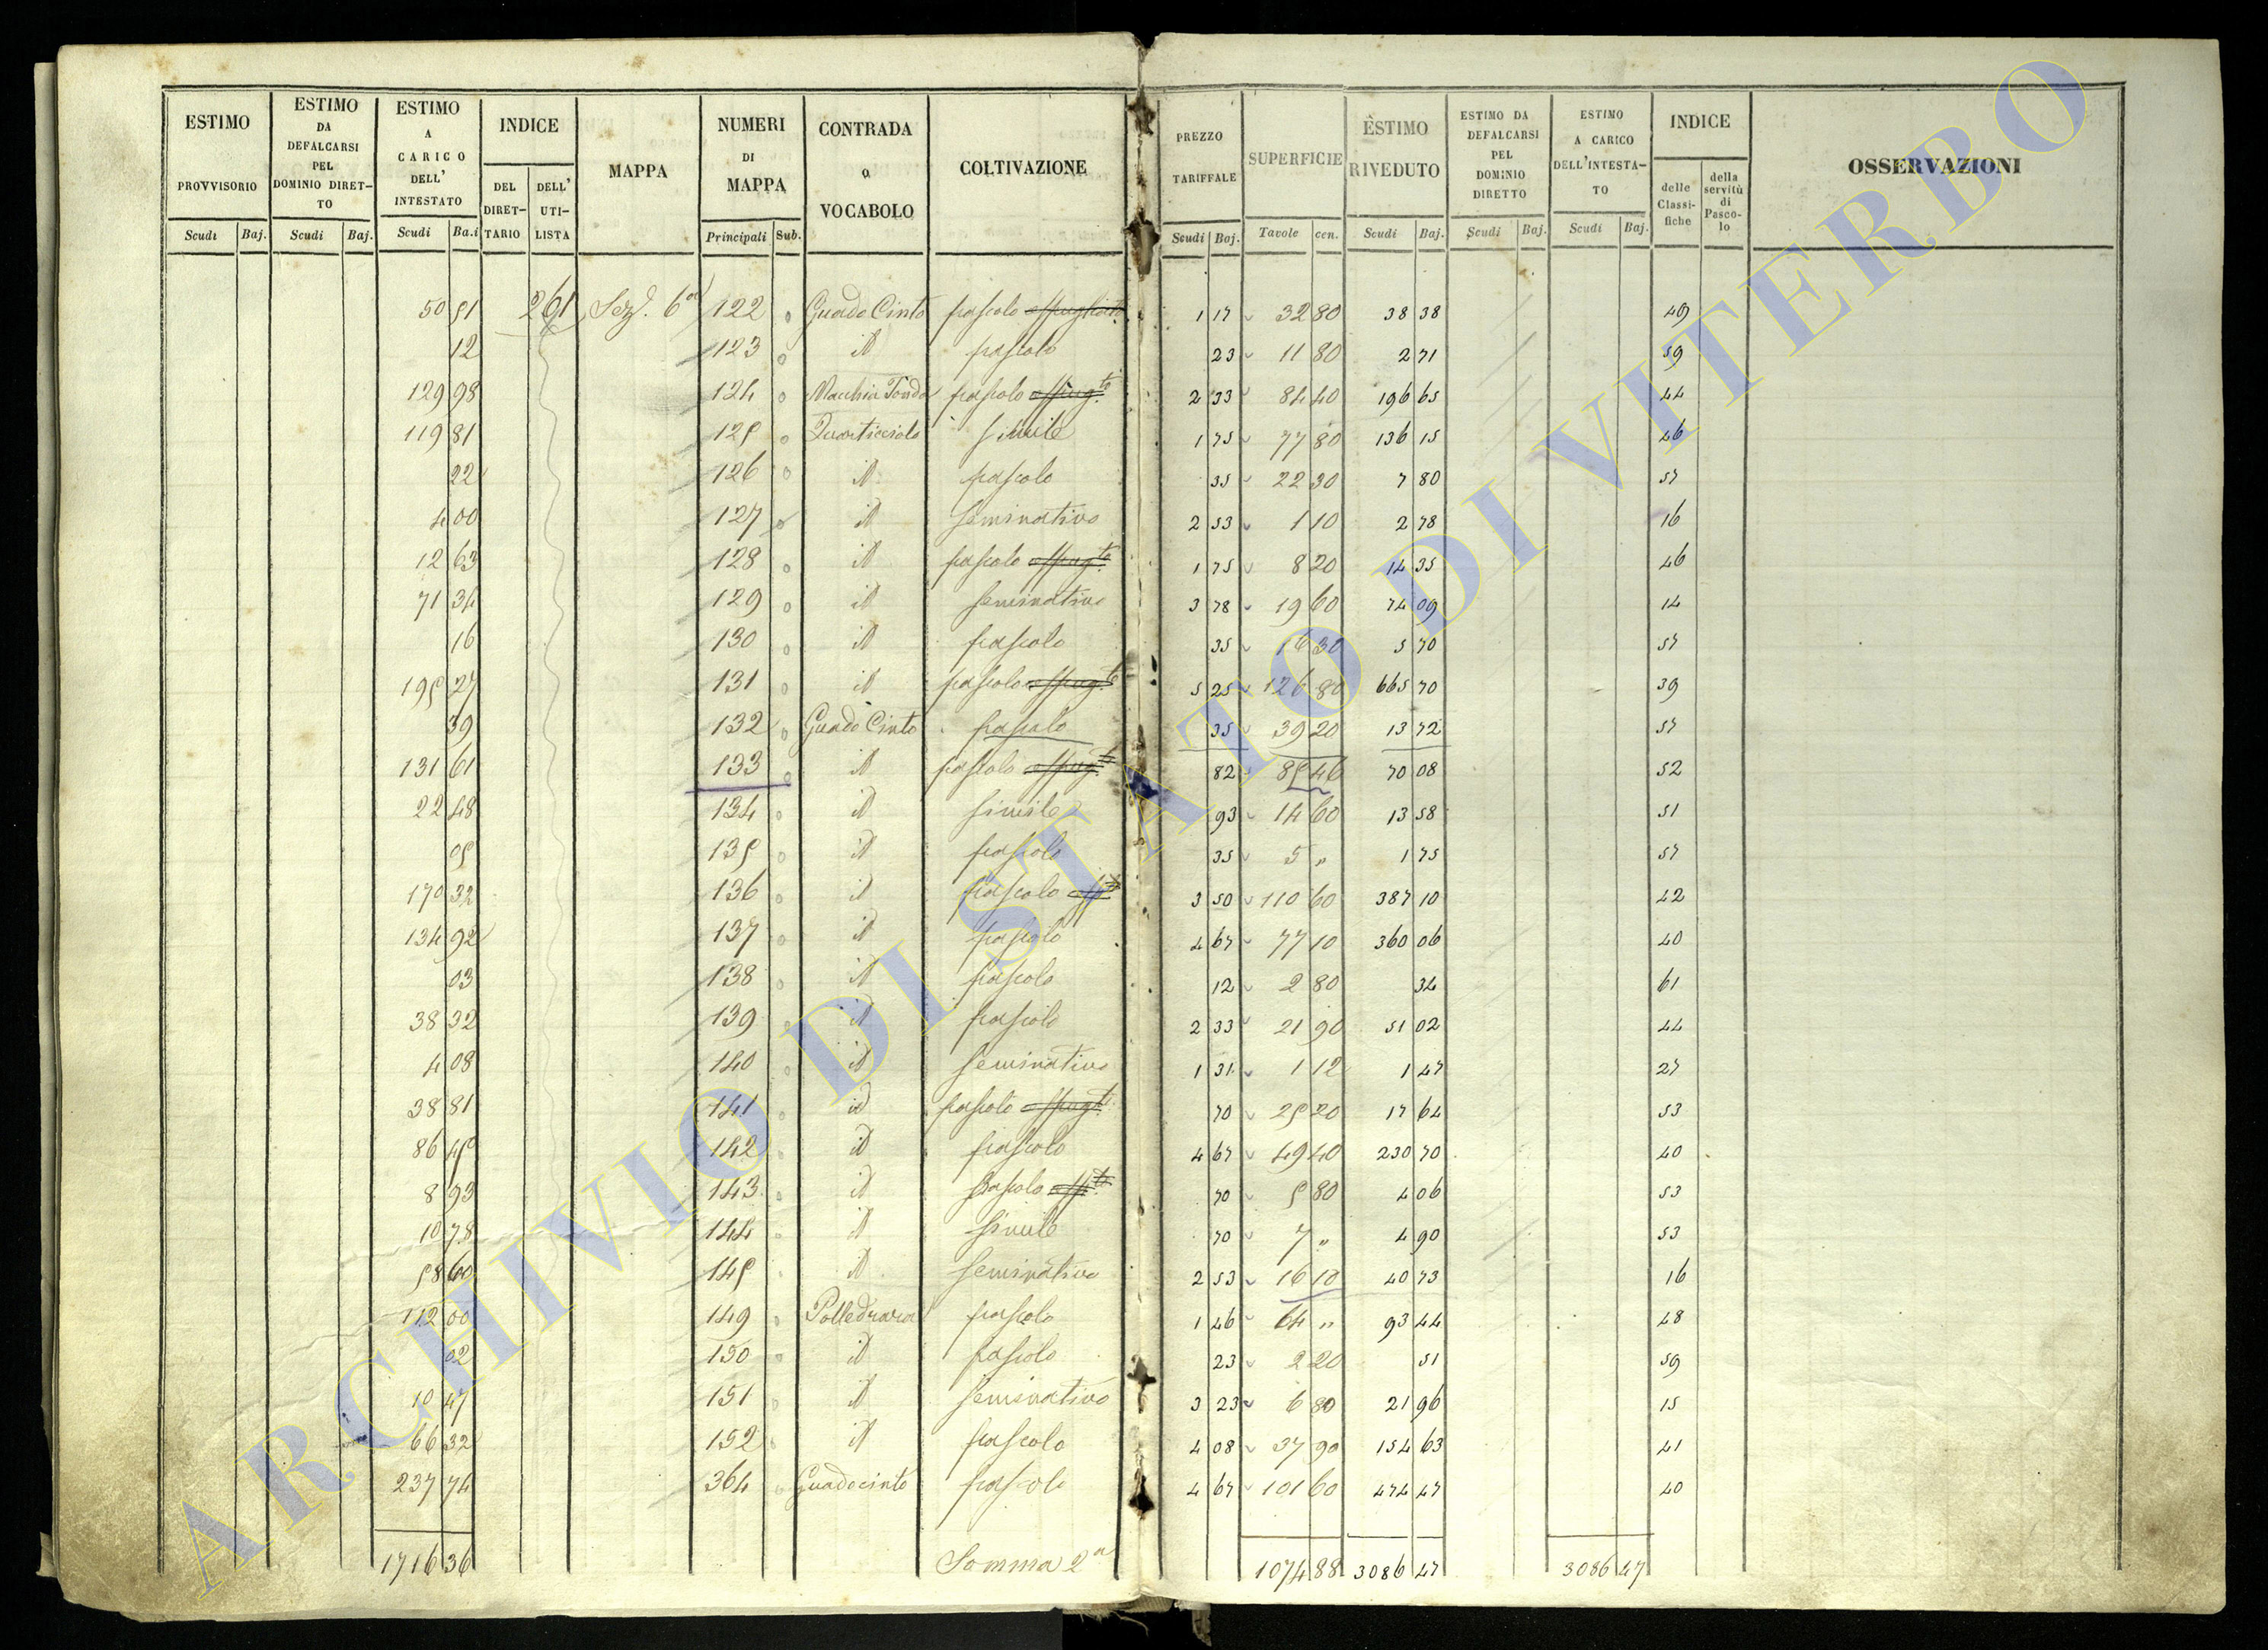 ESTIMO PROVVISORIO | ESTIMO DA DEFALCARSI PEL DOMINIO DIRET-TO | ESTIMO A CARICO DELL' INTESTATO | INDICE | MAPPA | NUMERI DI MAPPA | CONTRADA o VOCABOLO | COLTIVAZIONE | PREZZO TARIFFALE | SUPERFICIE | ESTIMO RIVEDUTO | ESTIMO DA DEFALCARSI PEL DOMINIO DIRETTO | ESTIMO A CARICO DELL'INTESTA-TO | INDICE | OSSERVAZIONI
DEL DIRET-TARIO | DELL' UTI-LISTA | delle Classi-fiche | della servitù di Pasco-lo
Scudi Baj. | Scudi Baj. | Scudi Ba.i | Principali Sub. | Scudi Baj. | Tavole cen. | Scudi Baj. | Scudi Baj. | Scudi Baj.
50 51 261 Sez. 6a 122 Guado Cinto pascolo 1 17 32 80 38 38 49
12 123 id pascolo 23 11 80 2 71 59
129 98 124 Macchia Tonda pascolo 2 33 84 40 196 65 44
119 81 125 Quarticciolo simile 1 75 77 80 136 15 46
22 126 id pascolo 35 22 30 7 80 57
4 00 127 id seminativo 2 53 1 10 2 78 16
12 63 128 id pascolo 1 75 8 20 14 35 46
71 34 129 id seminativo 3 78 19 60 74 09 14
16 130 id pascolo 35 16 30 5 70 57
195 27 131 id pascolo 5 25 126 80 665 70 39
39 132 Guado Cinto pascolo 35 39 20 13 72 57
131 61 133 id pascolo 82 85 46 70 08 52
22 48 134 id simile 93 14 60 13 58 51
05 135 id pascolo 35 5 " 1 75 57
170 32 136 id pascolo 3 50 110 60 387 10 42
134 92 137 id pascolo 4 67 77 10 360 06 40
03 138 id pascolo 12 2 80 34 61
38 32 139 id pascolo 2 33 21 90 51 02 44
4 08 140 id seminativo 1 31 1 12 1 47 27
38 81 141 id pascolo 70 25 20 17 64 53
86 45 142 id pascolo 4 67 49 40 230 70 40
8 93 143 id pascolo 70 5 80 4 06 53
10 78 144 id simile 70 7 " 4 90 53
58 60 145 id seminativo 2 53 16 10 40 73 16
112 00 149 Polledrara pascolo 1 46 64 " 93 44 48
02 150 id pascolo 23 2 20 51 59
10 47 151 id seminativo 3 23 6 80 21 96 15
66 32 152 id pascolo 4 08 37 90 154 63 41
237 74 364 Guadocinto pascolo 4 67 101 60 474 47 40
1716 36 Somma 2a 1074 88 3086 47 3086 47
ARCHIVIO DI STATO DI VITERBO